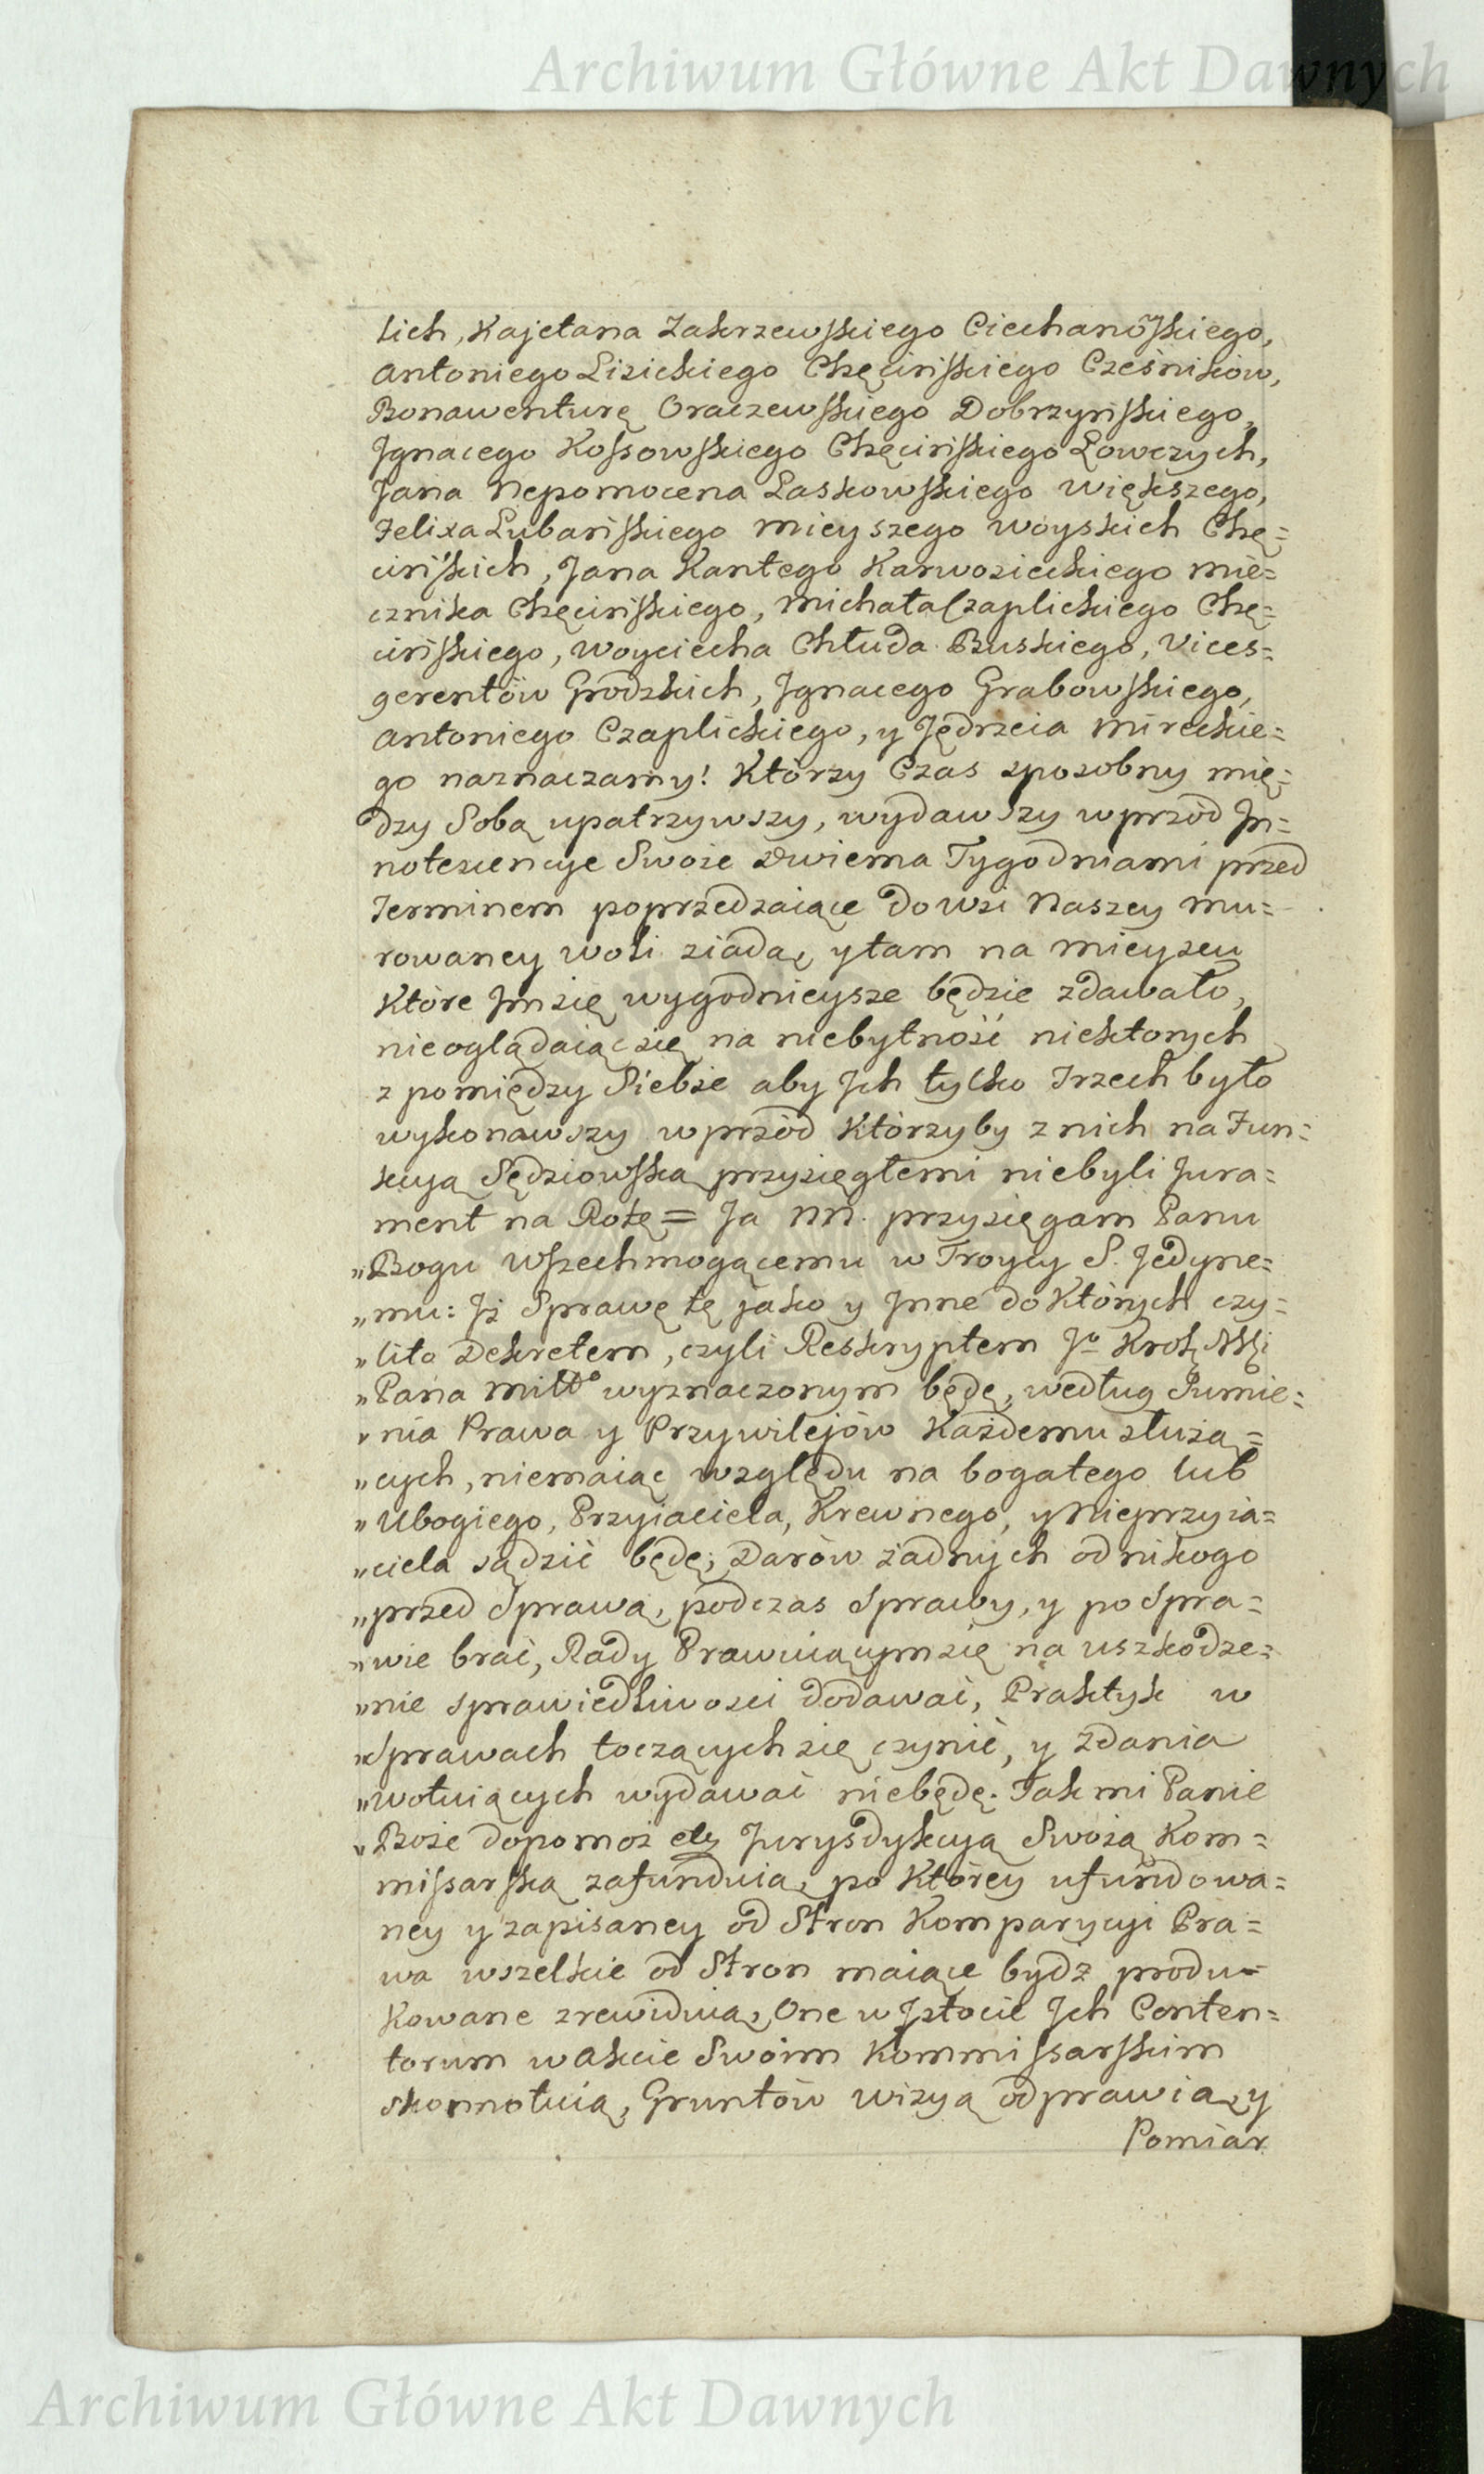 Archiwum Główne Akt Dawnych
lich, Kajetana Zakrzewskiego Ciechanowskiego,
Antoniego Lisickiego Chęcińskiego Cześników,
Bonawenturę Oraczewskiego Dobrzyńskiego,
Jgnacego Kossowskiego Chęcińskiego Łowczych,
Jana Nepomocena Laskowskiego większego,
Felixa Lubańskiego mieyszego woyskich Chę=
cińskich, Jana Kantego Karwosieckiego mie=
cznika Chęcińskiego, Michała Czaplickiego Chę=
cińskiego, Woyciecha Chłuda Buskiego, Vices=
gerentów Grodzkich, Jgnacego Grabowskiego,
Antoniego Czaplickiego, y Jędrzeia Mireckie=
go naznaczamy! Którzy Czas sposobny mię=
dzy Sobą upatrzywszy, wydawszy wprzód Jn=
notescencye Swoie dwiema Tygodniami przed
Terminem poprzedzaiące do wsi Naszey mu=
rowaney woli ziadą, y tam na mieyscu
Które Jm się wygodnieysze będzie zdawało,
nieoglądaiąc się na niebytność niektorych
z pomiędzy Siebie aby Jch tylko Trzech było
wykonawszy wprzód Którzyby z nich na Fun=
kcyą Sędziowską przysięgłemi niebyli Jura=
ment na Rotę = Ja NN. przysięgam Panu
„Bogu Wszechmogącemu w Troycy S. Jedyne=
„mu: Jż Sprawę tę jako y Jnne do Których czy=
„lito Dekretem, czyli Reskryptem Jo Krolę Mści
„Pana Miłło wyznaczonym będę, według Sumie=
„nia Prawa y Przywilejów Każdemu służą=
„cych, niemaiąc względu na bogatego lub
„Ubogiego, Przyiaciela, Krewnego, y Nieprzyia=
„ciela sądzić będę; Darów żadnych od nikogo
„przed Sprawą, podczas Sprawy, y po Spra=
„wie brać, Rady Prawuiącym się na uszkodze=
„nie sprawiedliwosci dodawać, Praktyk w
„Sprawach toczących się czynić, y Zdania
„wotuiących wydawać niebędę. Tak mi Panie
„Boże dopomoż etc Jurysdykcyą Swoią Kom=
missarską zafunduią, po Którey ufundowa=
ney y zapisaney od Stron Komparycyi Pra=
wa wszelkie od Stron maiące bydź produ=
kowane zrewiduią, One w Jstocie Jch Conten=
torum w Akcie Swoim Kommissarskim
skonnotuią, Gruntów wizyą odprawią, y
Pomiar
Archiwum Główne Akt Dawnych